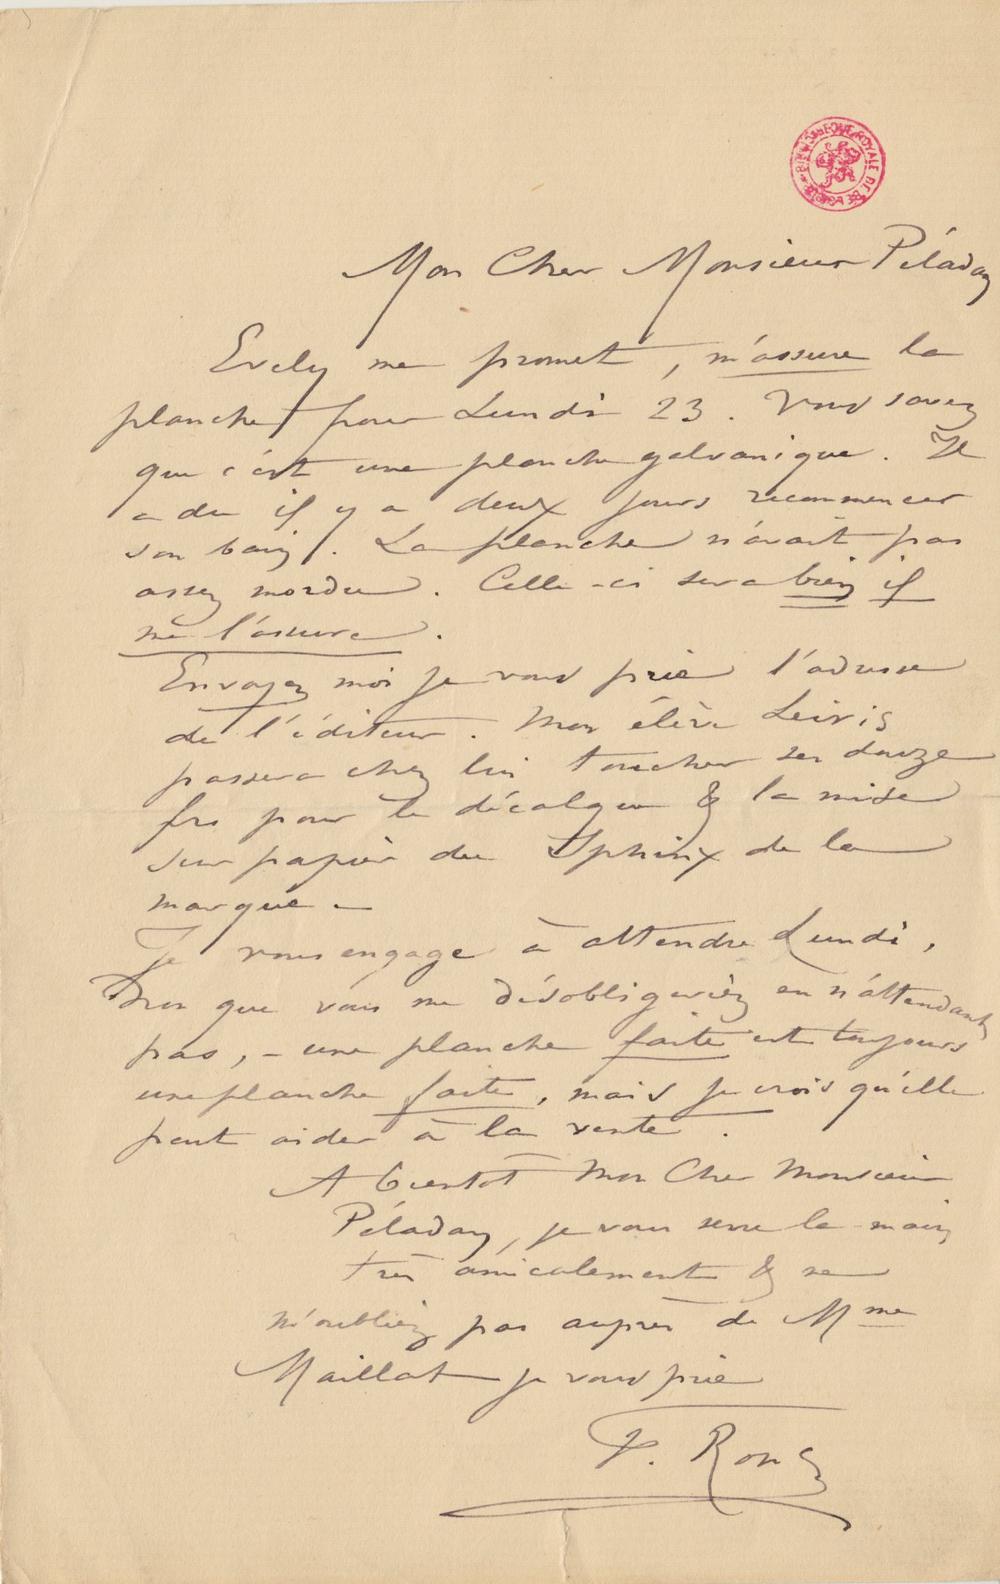 BIBLIOTHEQUE ROYALE DE BELGIQUE
Mon Cher Monsieur Péladan
Evely me promet, m'assure la
planche pour Lundi 23. Vous savez
que c'est une planche galvanique. Il
a du il y a deux jours recommencer
son bain. La planche n'avait pas
assez mordu. Celle-ci sera bien il
me l'assure.
Envoyez moi je vous prie l'adresse
de l'éditeur. Mon élève Leiris
passera chez lui toucher ses douze
frs pour le décalque & la mise
sur papier du Sphinx de la
marque —
Je vous engage à attendre Lundi,
Non que vous me désobligeriez en n'attendant
pas, – une planche faite est toujours
une planche faite, mais je crois qu'elle
peut aider à la vente.
A bientôt Mon Cher Monsieur
Péladan, je vous serre la main
très amicalement & ne
m'oubliez pas auprès de Mme
Maillat je vous prie
F. Rops